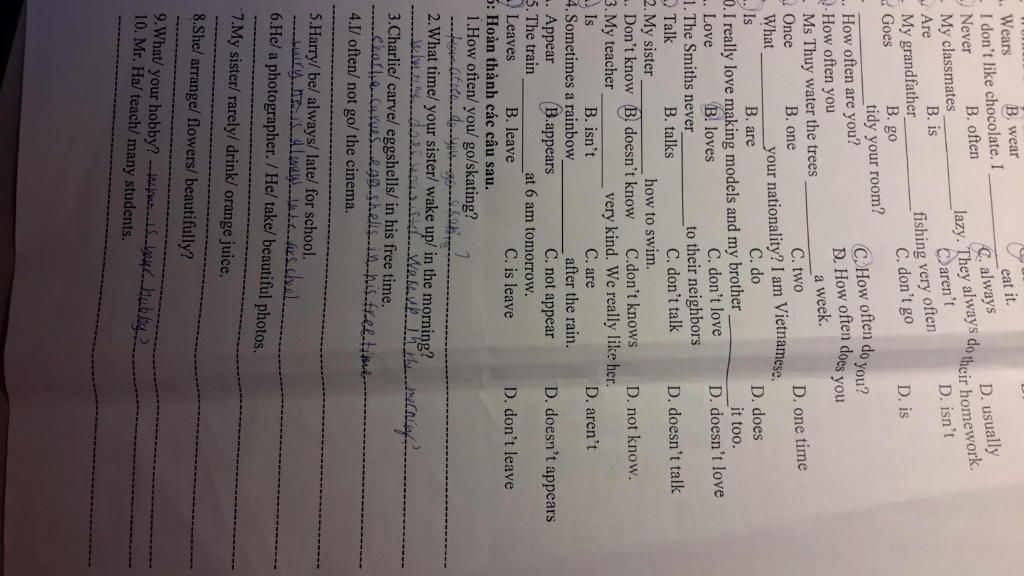 . Wears B. wear
I don't like chocolate. I ______ eat it.
Never B. often C. always D. usually
My classmates ______ lazy. They always do their homework.
Are B. is C. aren't D. isn't
My grandfather ______ fishing very often
Goes B. go C. don't go D. is
______ tidy your room?
. How often are you? C. How often do you?
How often you D. How often does you
Ms Thuy water the trees ______ a week.
Once B. one C. two D. one time
What ______ your nationality? I am Vietnamese.
Is B. are C. do D. does
0. I really love making models and my brother ______ it too.
. Love B. loves C. don't love D. doesn't love
1. The Smiths never ______ to their neighbors
Talk B. talks C. don't talk D. doesn't talk
2. My sister ______ how to swim.
. Don't know B. doesn't know C. don't knows D. not know.
3. My teacher ______ very kind. We really like her.
Is B. isn't C. are D. aren't
4. Sometimes a rainbow ______ after the rain.
. Appear B. appears C. not appear D. doesn't appears
5. The train ______ at 6 am tomorrow.
Leaves B. leave C. is leave D. don't leave
: Hoàn thành các câu sau.
1.How often/ you/ go/skating?
How often do you go skating ?
2. What time/ your sister/ wake up/ in the morning?
What time does your sister wake up in the morning?
3.Charlie/ carve/ eggshells/ in his free time.
Charlie carves eggshells in his free time
4.I/ often/ not go/ the cinema.
5.Harry/ be/ always/ late/ for school.
Harry is always late for school
6.He/ a photographer. / He/ take/ beautiful photos.
7.My sister/ rarely/ drink/ orange juice.
8.She/ arrange/ flowers/ beautifully?
9.What/ your hobby? What is your hobby?
10. Mr. Ha/ teach/ many students.